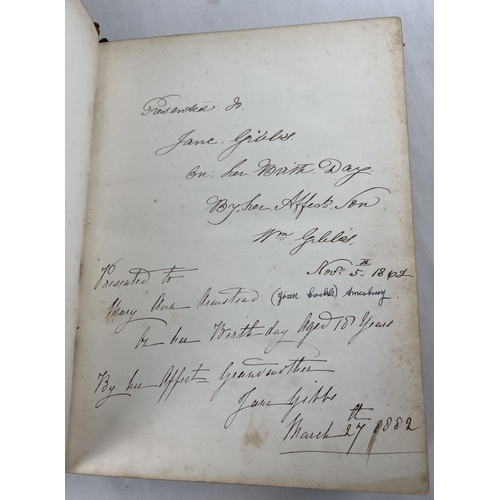 Presented to
Jane Gibbs
on her Birth Day
By her Affect. Son
Wm Gibbs,
Novr. 5th 1862
Presented to
Mary Ann Armstead Amesbury
on her Birthday Aged 18 Years
By her Affect Grandmother
Jane Gibbs
March 27th 1882